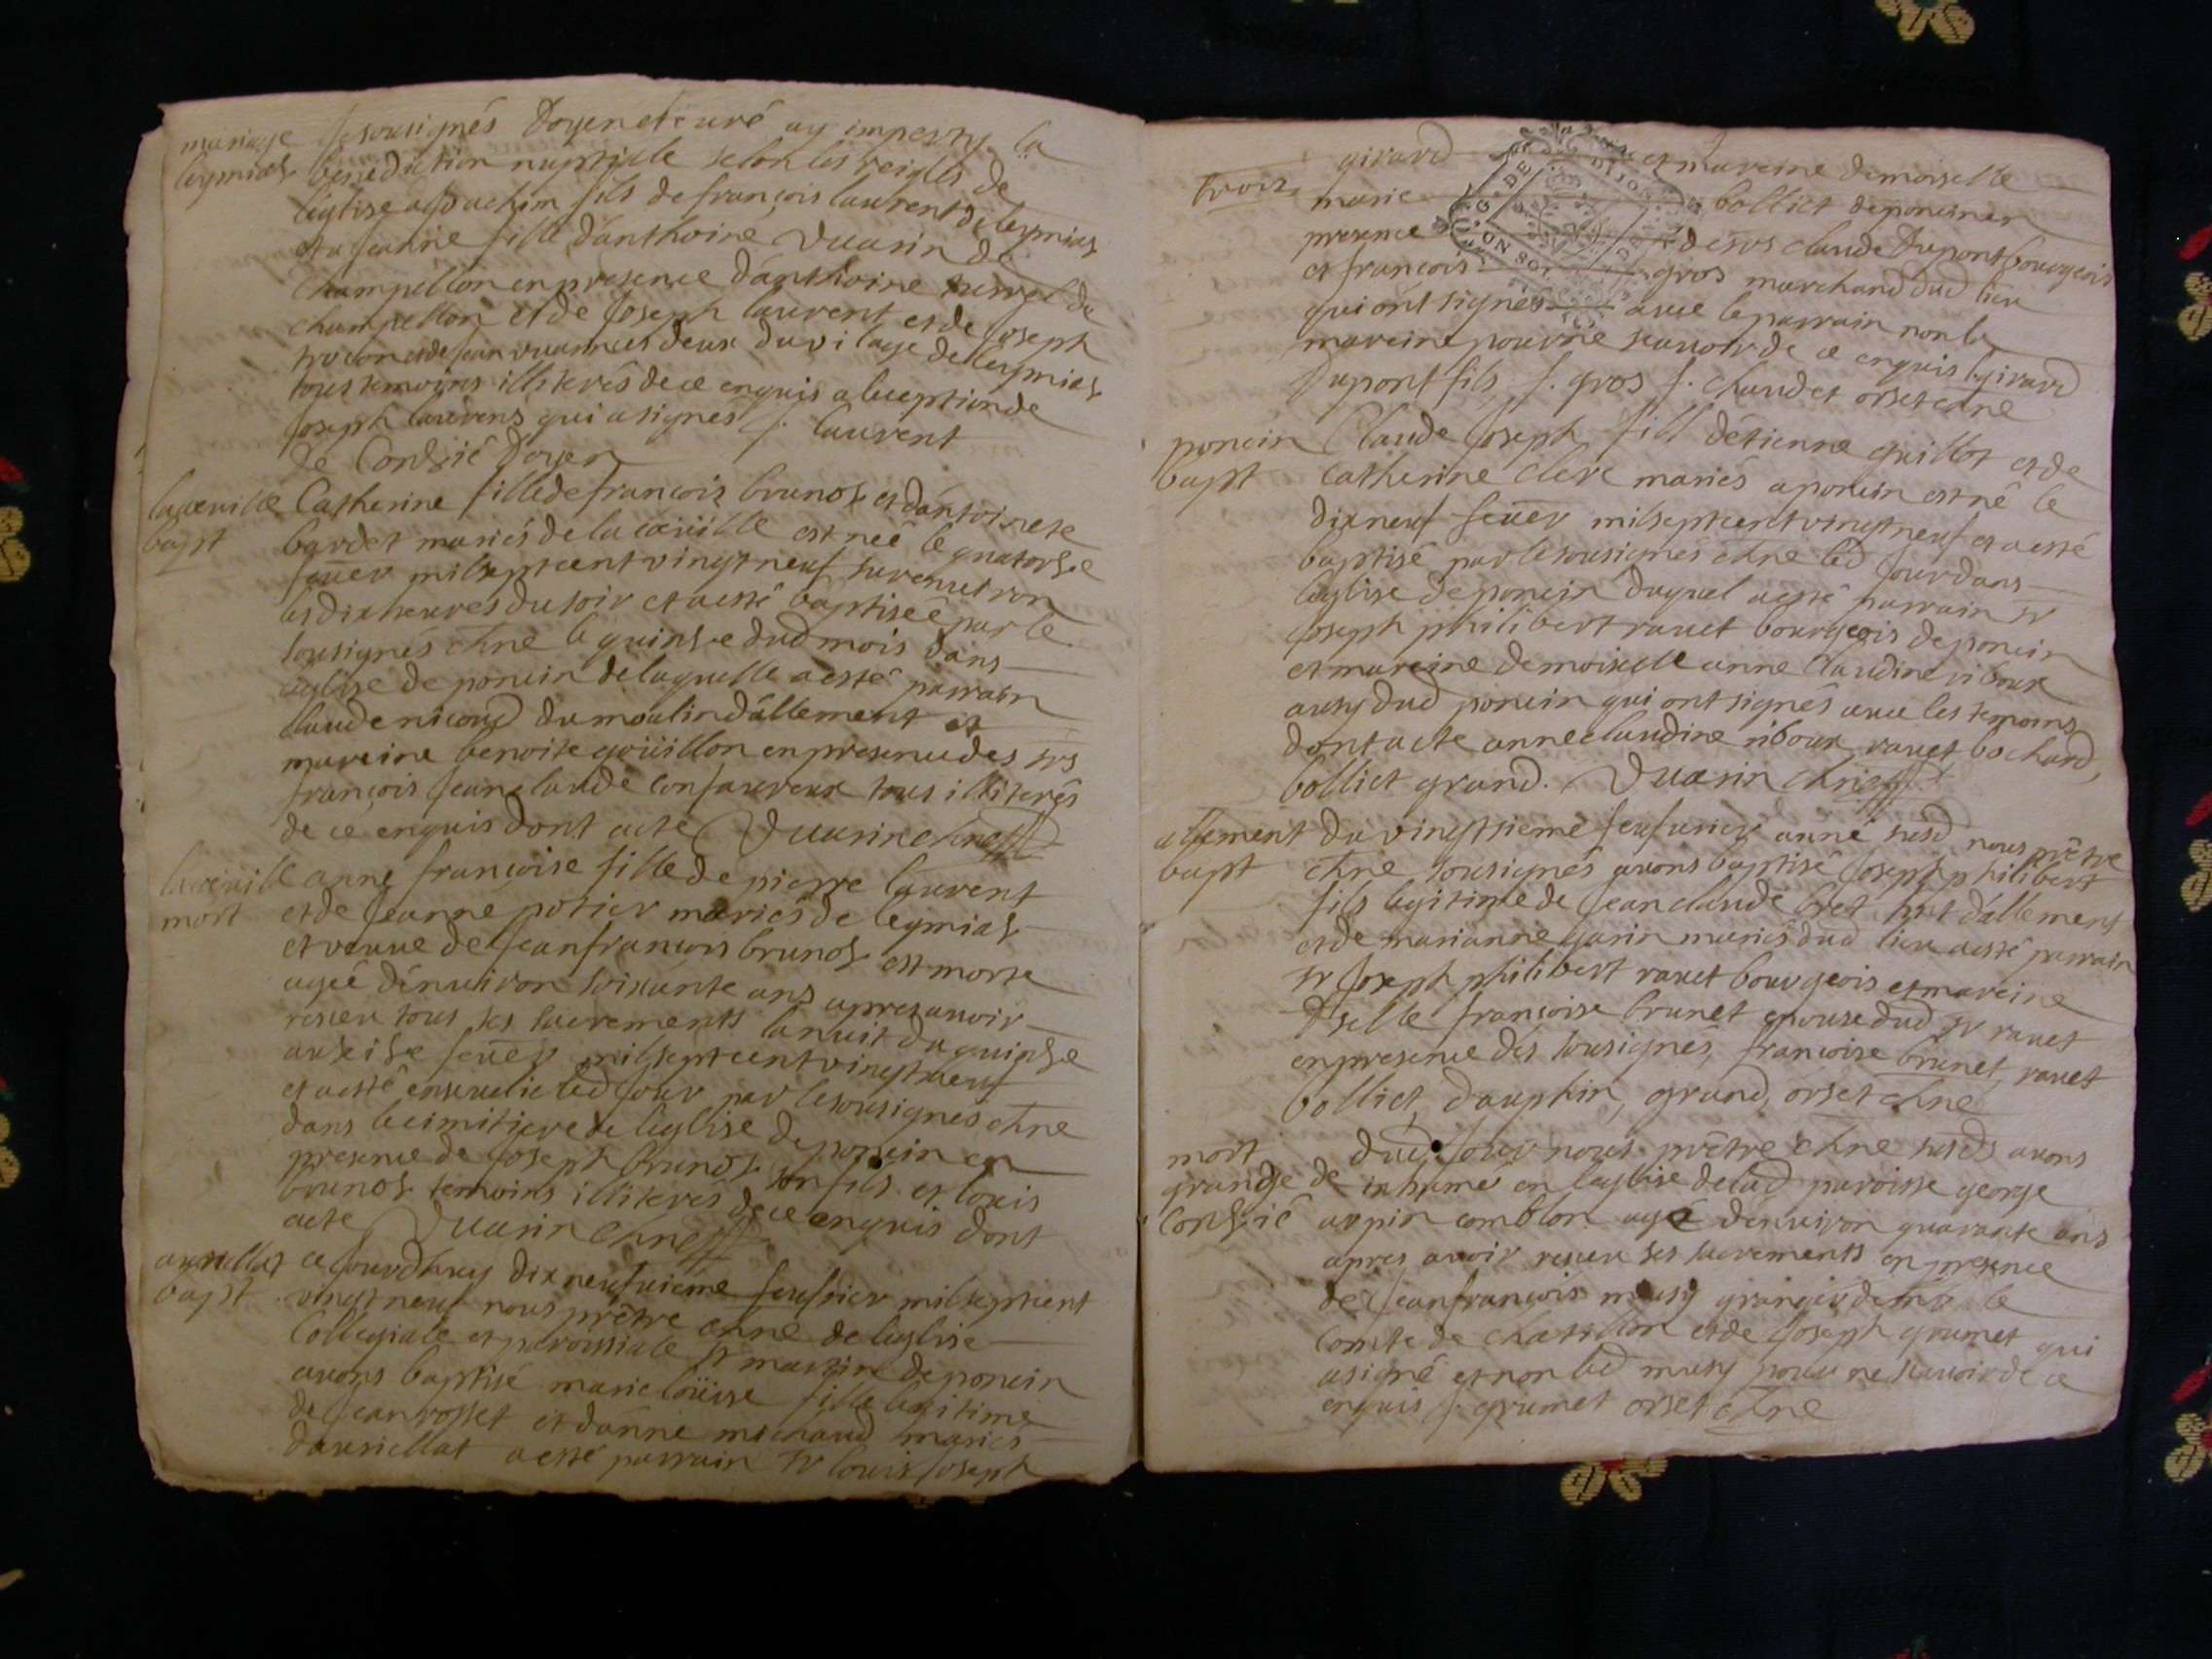 mariage Je sousignés Doyen et curé ay imparty la
leymiat benediction nuptiale selon les reigles de
l'eglise a Joachim fils de françois laurent de leymiat
et a Jeanne fille d'anthoine Vuarin de
Champellon en presence d'anthoine de
champellon et de Joseph laurent et de Joseph
et de Jean deux du vilage de leymiat
tous temoins illiterés de ce enquis a l'exeption de
Joseph laurens qui a signés J. laurent
de Conzié Doyen
lacueuille Catherine fille de francois brunot et d'antoinete
bapt bardet mariés de la cueüille est née le quatorse
feuer mil sept cent vingt neuf sur enuiron
les dix heures du soir et a esté baptiseé par le
sousignés chne le quinse dud mois dans
eglise de poncin de laquelle a esté parrain
claude nicoud du moulin d'allement et
mareine benoite goüillon en presence des srs
françois Jean claude tous illiterés
de ce enquis dont acte Vuarin chne
lacueuille anne françoise fille de pierre laurent
mort et de Jeanne potier mariés de leymiat
et veuue de Jean francois brunot est morte
ageé d'enuiron soixante ans apres auoir
receu tous ses sacrements la nuit du quinse
au seise feuer mil sept cent vingt neuf
et a esté enseuelie led Jour par le sousignés chne
dans le cimitiere de l'eglise de poncin en
presence de Joseph brunot son fils et louis
brunot temoins illiterés de ce enquis dont
acte Vuarin chne
bapt ce Jourdhuy dix neufuieme feufrier mil sept cent
vingt neuf nous prêtre chne de l'eglise
Collegiale et paroissiale st martin de poncin
auons baptisé marie loüise fille legitime
de Jean rosset et d'anne michaud mariés
a esté parrain sr louis Joseph
girard et mareine demoiselle
trois marie bolliet de poncin en
presence de srs claude Dupont bourgeois
et francois gros marchand dud lieu
qui ont signés auec le parrain non la
mareine pour ne scauoir de ce enquis l. girard
Dupont fils, f. gros J. chaudet orset chne
poncin Claude Joseph fill d'etienne guillot et de
bapt Catherine clerc mariés a poncin est né le
dixneuf feuer mil sept cent vingt neuf et a esté
baptisé par le sousignés chne led Jour dans
l'eglise de poncin duquel a esté parrain sr
Joseph philibert rauet bourgeois de poncin
et mareine demoiselle anne claudine riboux
aussy dud poncin qui ont signés auec les temoins
dont acte anne claudine riboux, rauet, bochard,
bolliet grand. Vuarin chne
allement du vingtsieme feufurier anné susd nous prêtre
bapt chne sousignés auons baptisé Joseph philibert
fils legitime de Jean claude d'allement
et de marianne garin mariés dud lieu a esté parrain
sr Joseph philibert rauet bourgeois et mareine
Dselle françoise brunet epouse dud sr rauet
en presence des sousignés, francoise brunet, rauet
bolliet, dauphin, grand, orset chne
mort dud Jour nous prêtre chne susds auons
grande de inhumé en l'eglise de lad paroisse george
Conzié arpin comblon agé d'enuiron quarante ans
apres auoir receu ses sacrements en presence
de Jean francois musy granger de mr le
comte de chatillon et de Joseph grumet qui
a signé et non led musy pour ne scauoir de ce
enquis J. grumet orset chne